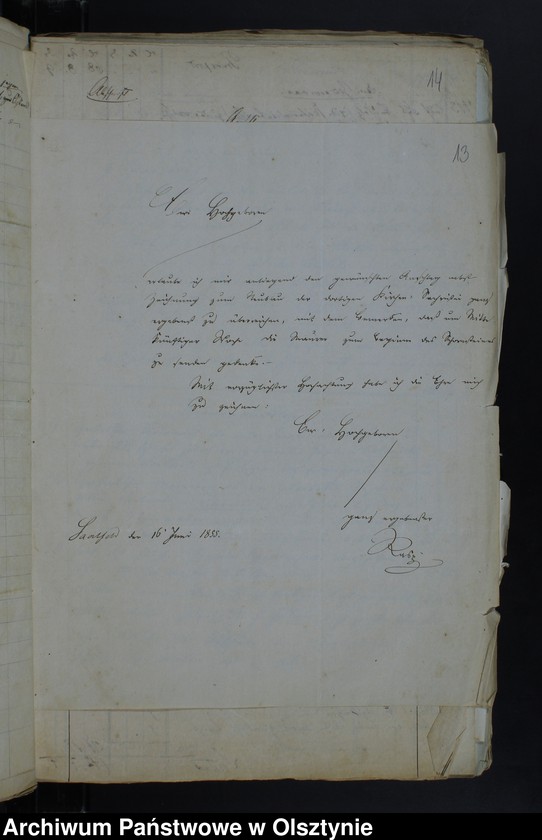 14
13
Euer Hochgeboren
erlaube ich mir anliegend den gewünschten Anschlag nebst
Zeichnung zum Neubau der dortigen Kirchen-Sacristei ganz
ergebenst zu überreichen, mit dem Bemerken, daß um Mitte
künftiger Woche die Maurer zum Beginn des Schornsteines
zu senden gedenke.
Mit vorzüglichster Hochachtung habe ich die Ehre mich
zu zeichnen.
Ew. Hochgeboren
ganz ergebenster
Saalfeld den 16 Juni 1855.
Archiwum Państwowe w Olsztynie